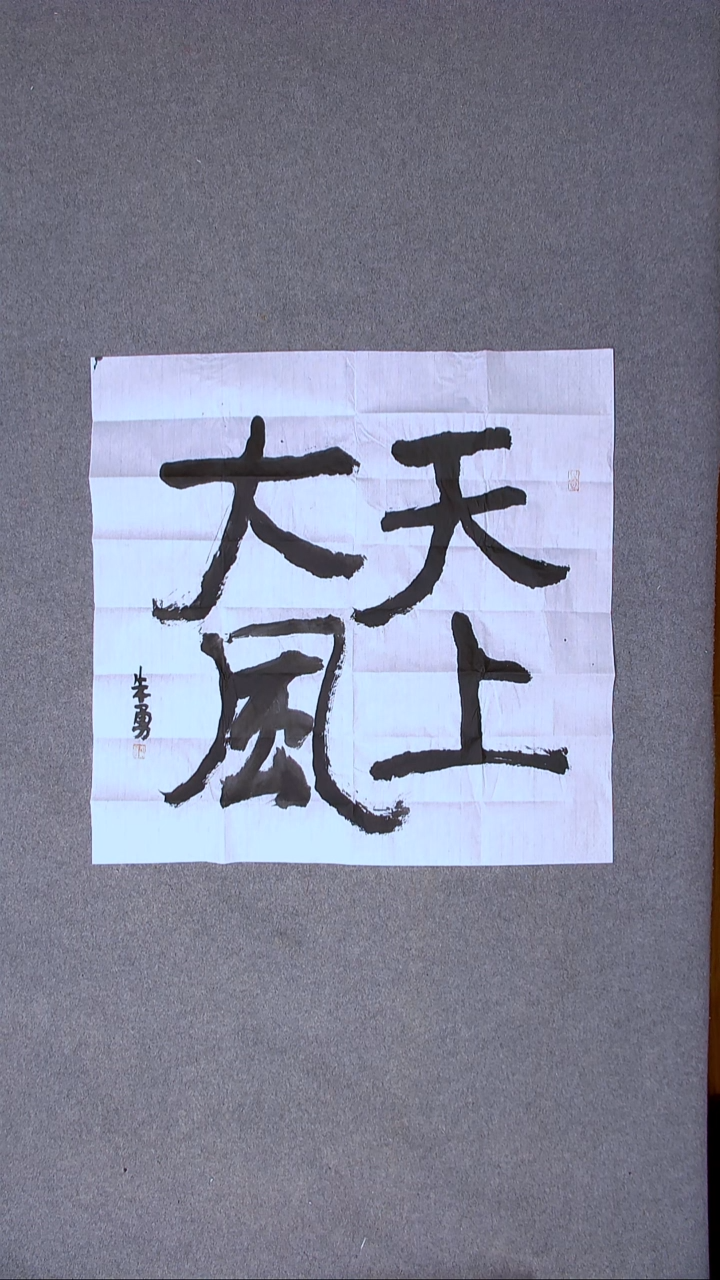 天上
大風
朱勇